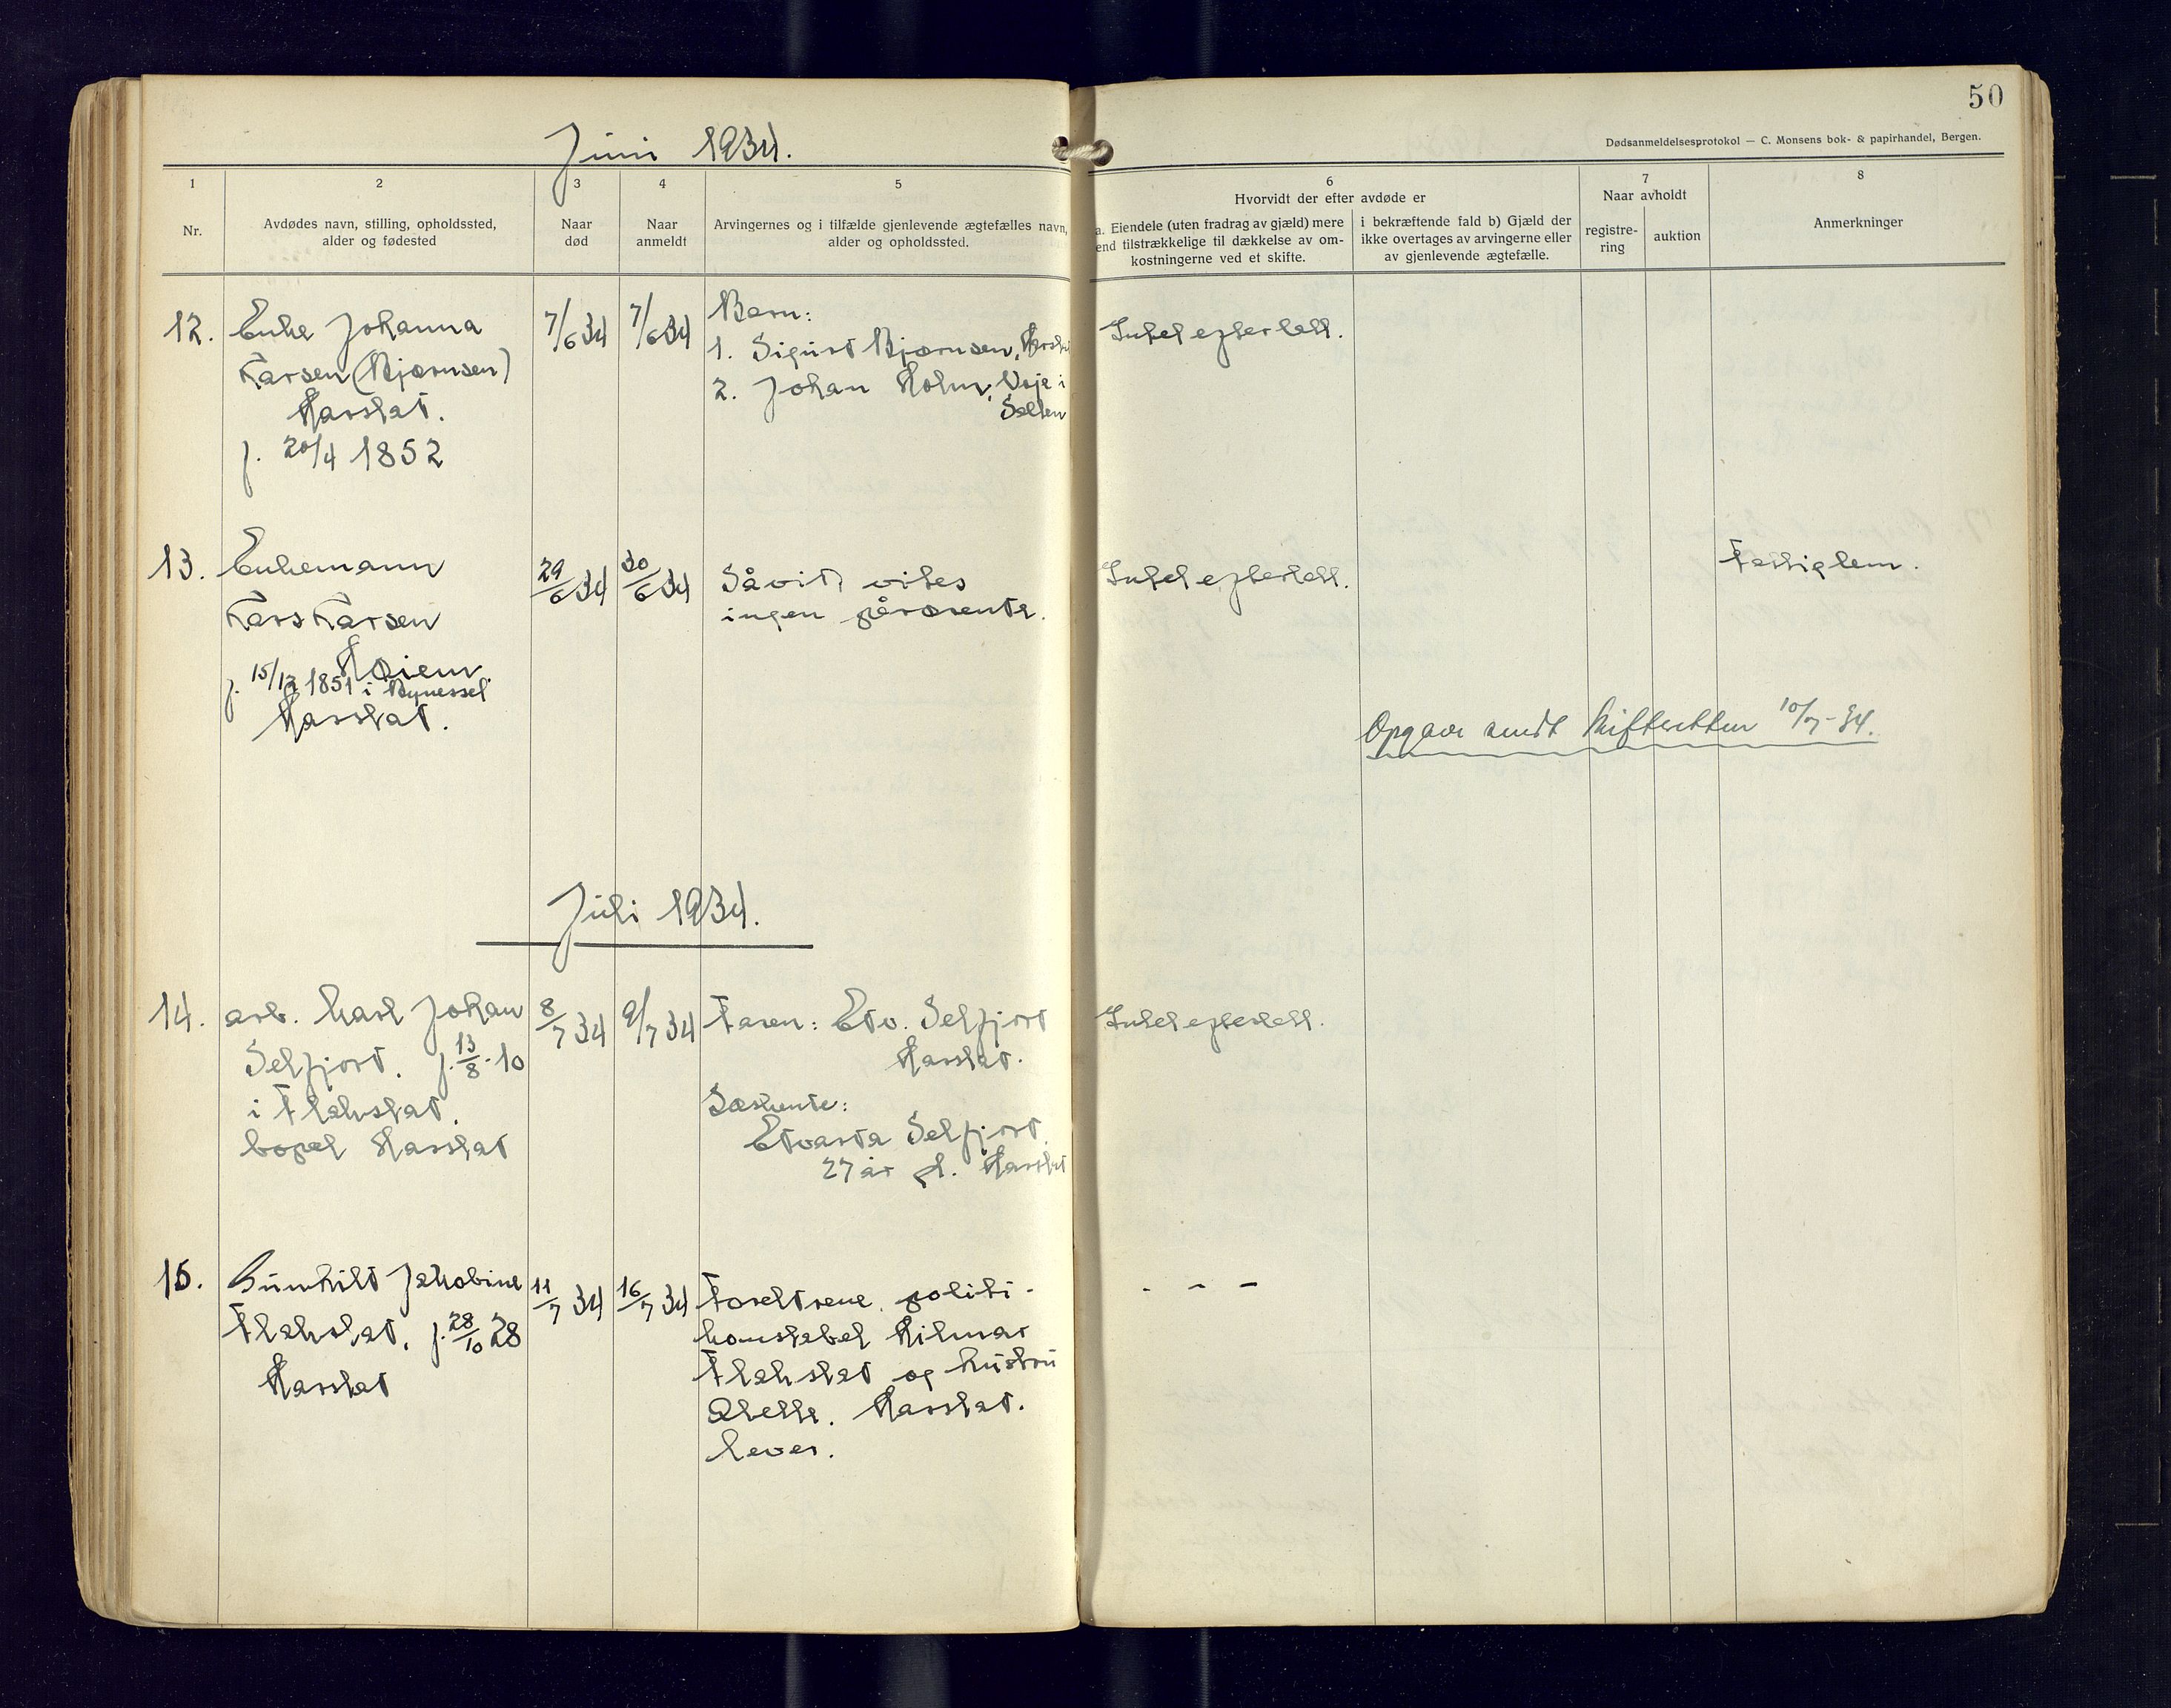 50
Dødsanmeldelsesprotokol — C. Monsens bok- & papirhandel, Bergen.
Juni 1934.
1
2
3
4
5
6
7
8
Nr.
Avdødes navn, stilling, opholdssted,
alder og fødested
Naar
død
Naar
anmeldt
Arvingernes og i tilfælde gjenlevende ægtefælles navn,
alder og opholdssted.
Hvorvidt der efter avdøde er
a. Eiendele (uten fradrag av gjæld) mere
end tilstrækkelige til dækkelse av om-
kostningerne ved et skifte.
i bekræftende fald b) Gjæld der
ikke overtages av arvingerne eller
av gjenlevende ægtefælle.
Naar avholdt
registre-
ring
auktion
Anmerkninger
12.
Enke Johanna
Larsen (Bjørnsen)
Harstad.
f. 20/4 1852
7/6 34
7/6 34
Barn:
1. Sigurd Bjørnsen,
2. Johan Holm,
Intet efterlatt.
13.
Enkemann
Lars Larsen
Høiem.
f. 15/12 1851 i Bynesset
Harstad.
29/6 34
30/6 34
Såvidt vites
ingen pårørende.
Intet efterlatt.
Fattiglem.
Opgave sendt skifteretten 10/7-34.
Juli 1934.
14.
arb. Karl Johan
Selfjord. f. 13/8-10
i Flakstad.
bopel Harstad
8/7 34
9/7 34
Faren: Edv. Selfjord
Harstad.
Søskende:
Edvarda Selfjord.
27 år g. Harstad
Intet efterlatt.
15.
Gunhild Jakobine
Flakstad. f. 28/10 28
Harstad
11/7 34
16/7 34
Foreldrene, politi-
konstabel Hilmar
Flakstad og hustru
Harstad.
lever.
- - -